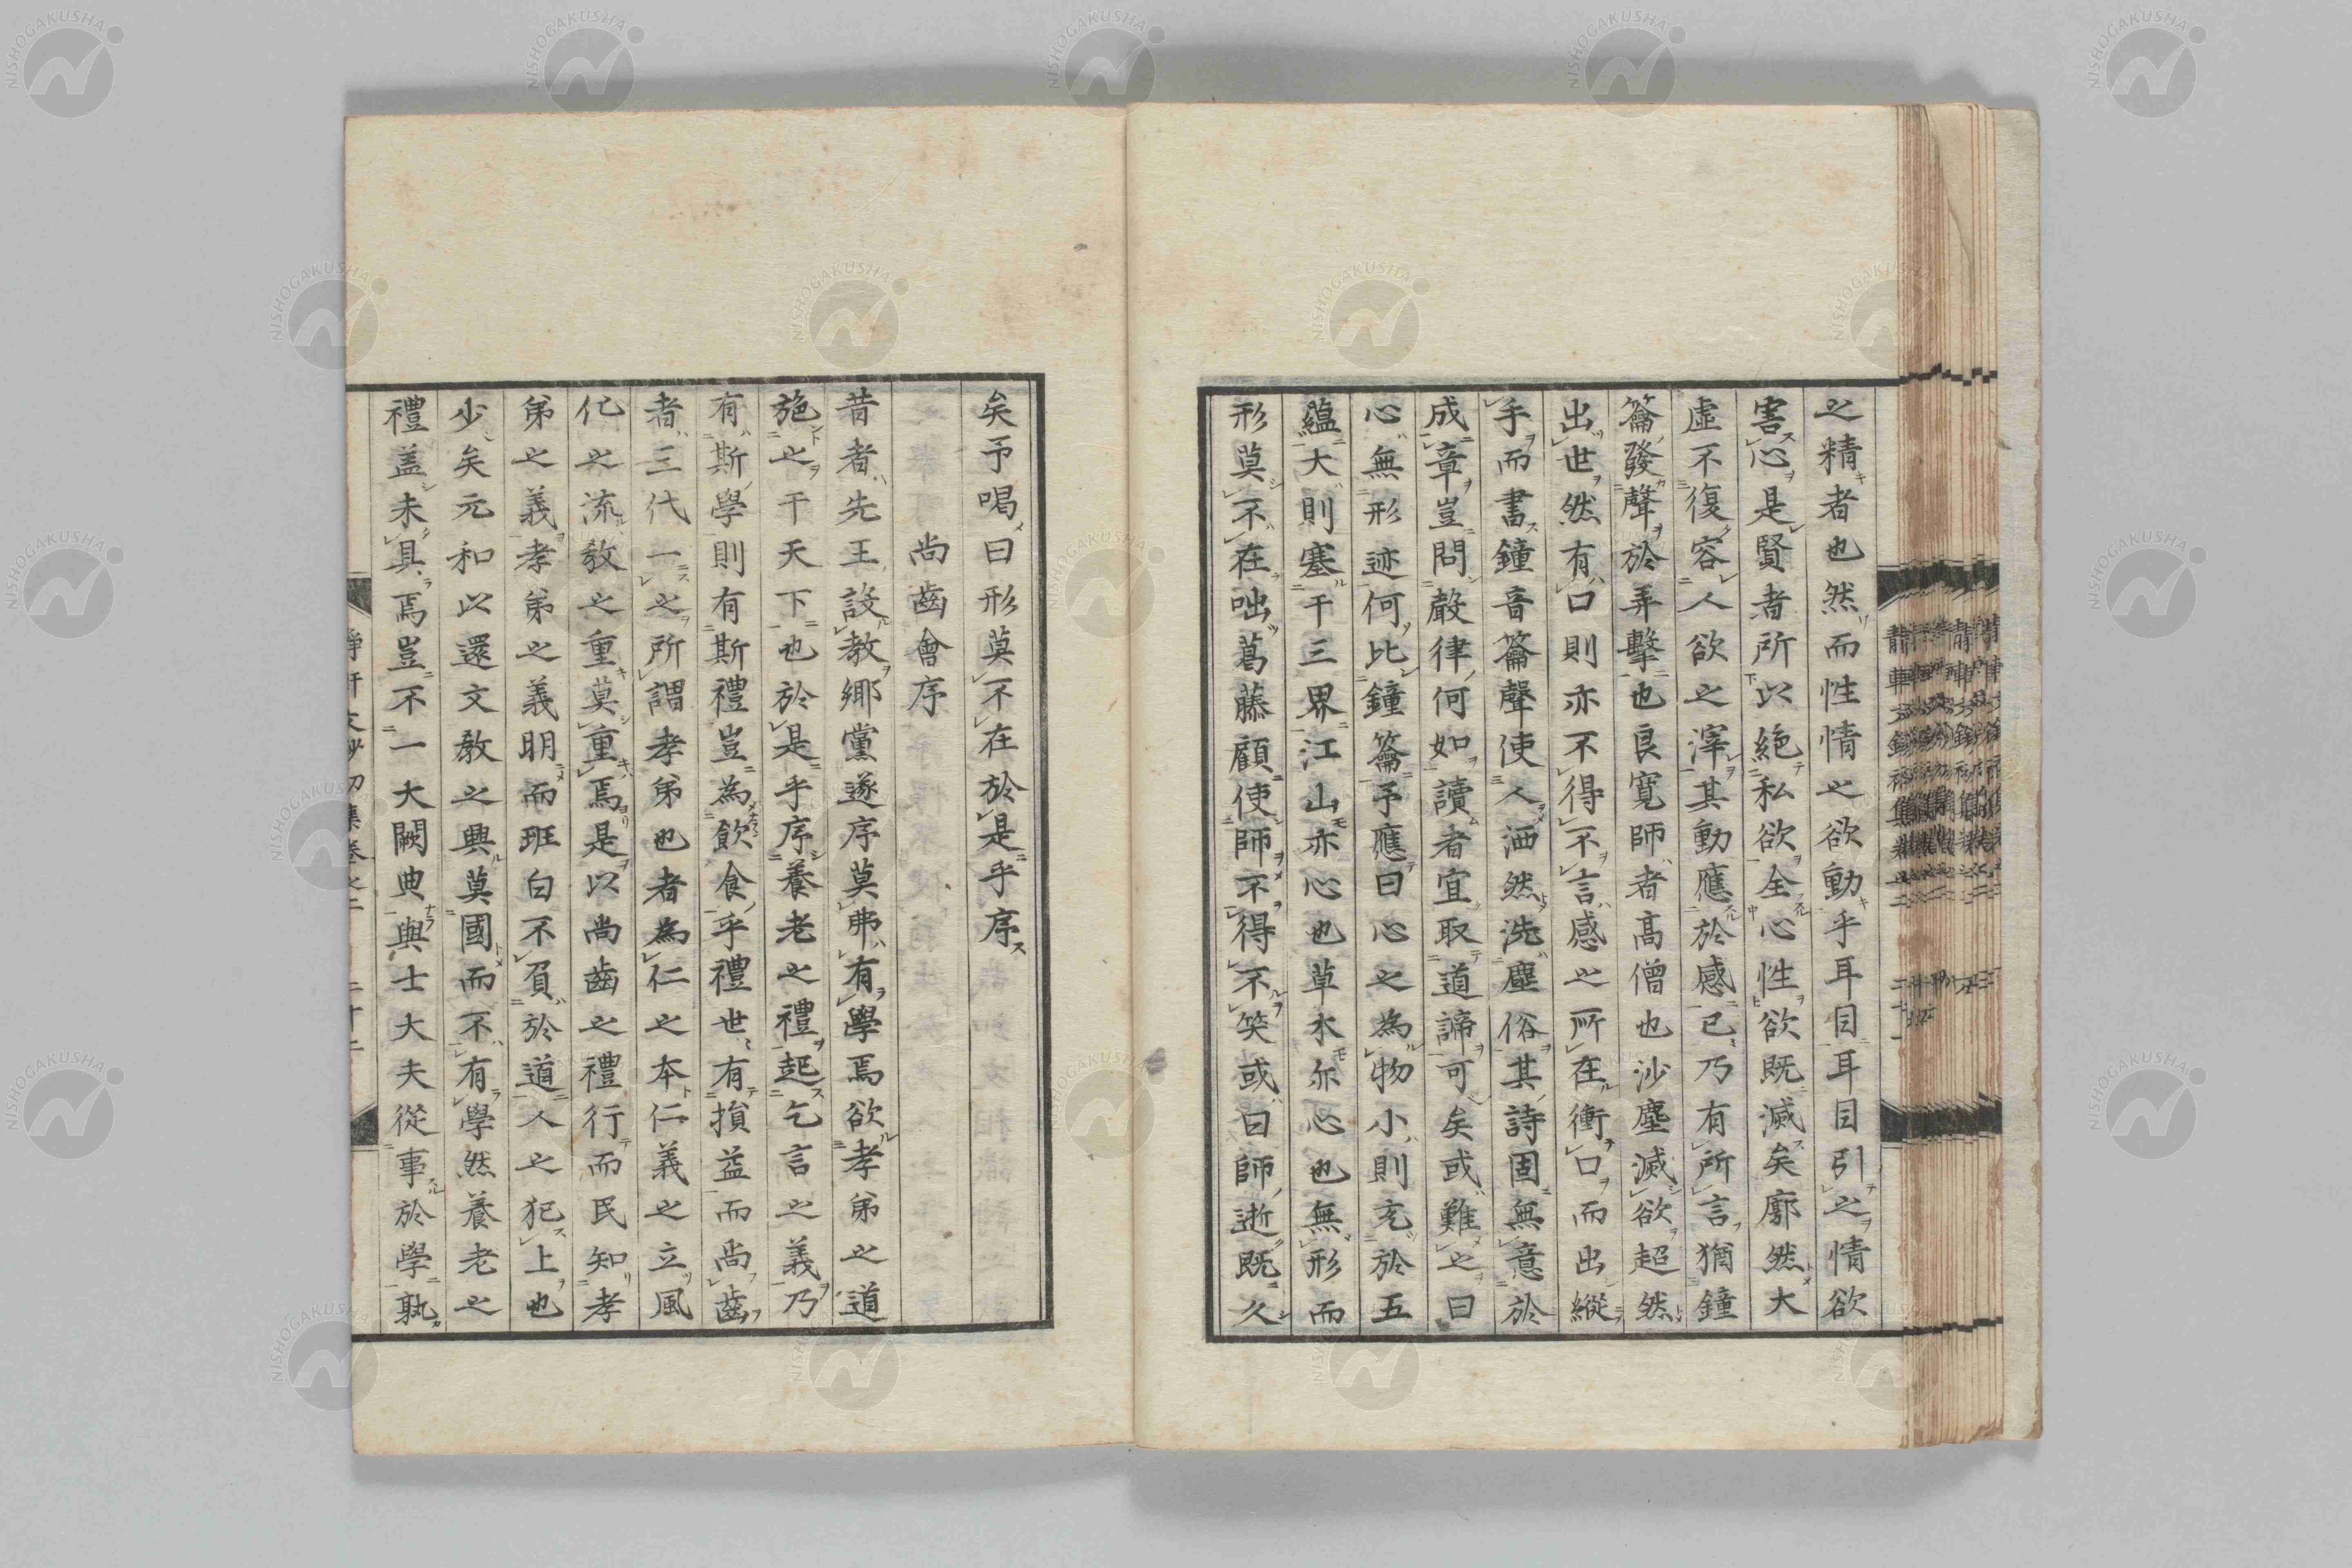 之精者也然而性情之欲動乎耳目耳目引之情欲
害心是賢者所以絶私欲全心性欲既滅矣廓然大
虛不復容人欲之滓其動應於感已乃有所言猶鐘
籥發聲於弄擊也良寬師者高僧也沙塵滅欲超然
出世然有口則亦不得不言感之所在衝口而出縱
手而書鐘音籥聲使人洒然洗塵俗其詩固無意於
成章豈問聲律何如讀者宜取道諦可矣或難之曰
心無形迹何比鐘籥予應曰心之為物小則充於五
蘊大則塞干三界江山亦心也草木亦心也無形而
形莫不在咄葛藤顧使師不得不笑或曰師逝既久
矣予喝曰形莫不在於是乎序
尚齒會序
昔者先王設教鄉黨遂序莫弗有學焉欲孝弟之道
施之干天下也於是乎序養老之禮起乞言之義乃
有斯學則有斯禮豈為飲食乎禮世有損益而尚齒
者三代一之所謂孝弟也者為仁之本仁義之立風
化之流教之重莫重焉是以尚齒之禮行而民知孝
弟之義孝弟之義明而班白不負於道人之犯上也
少矣元和以還文教之興莫國而不有學然養老之
禮蓋未具焉豈不一大闕典與士大夫從事於學孰
NISHOGAKUSHA